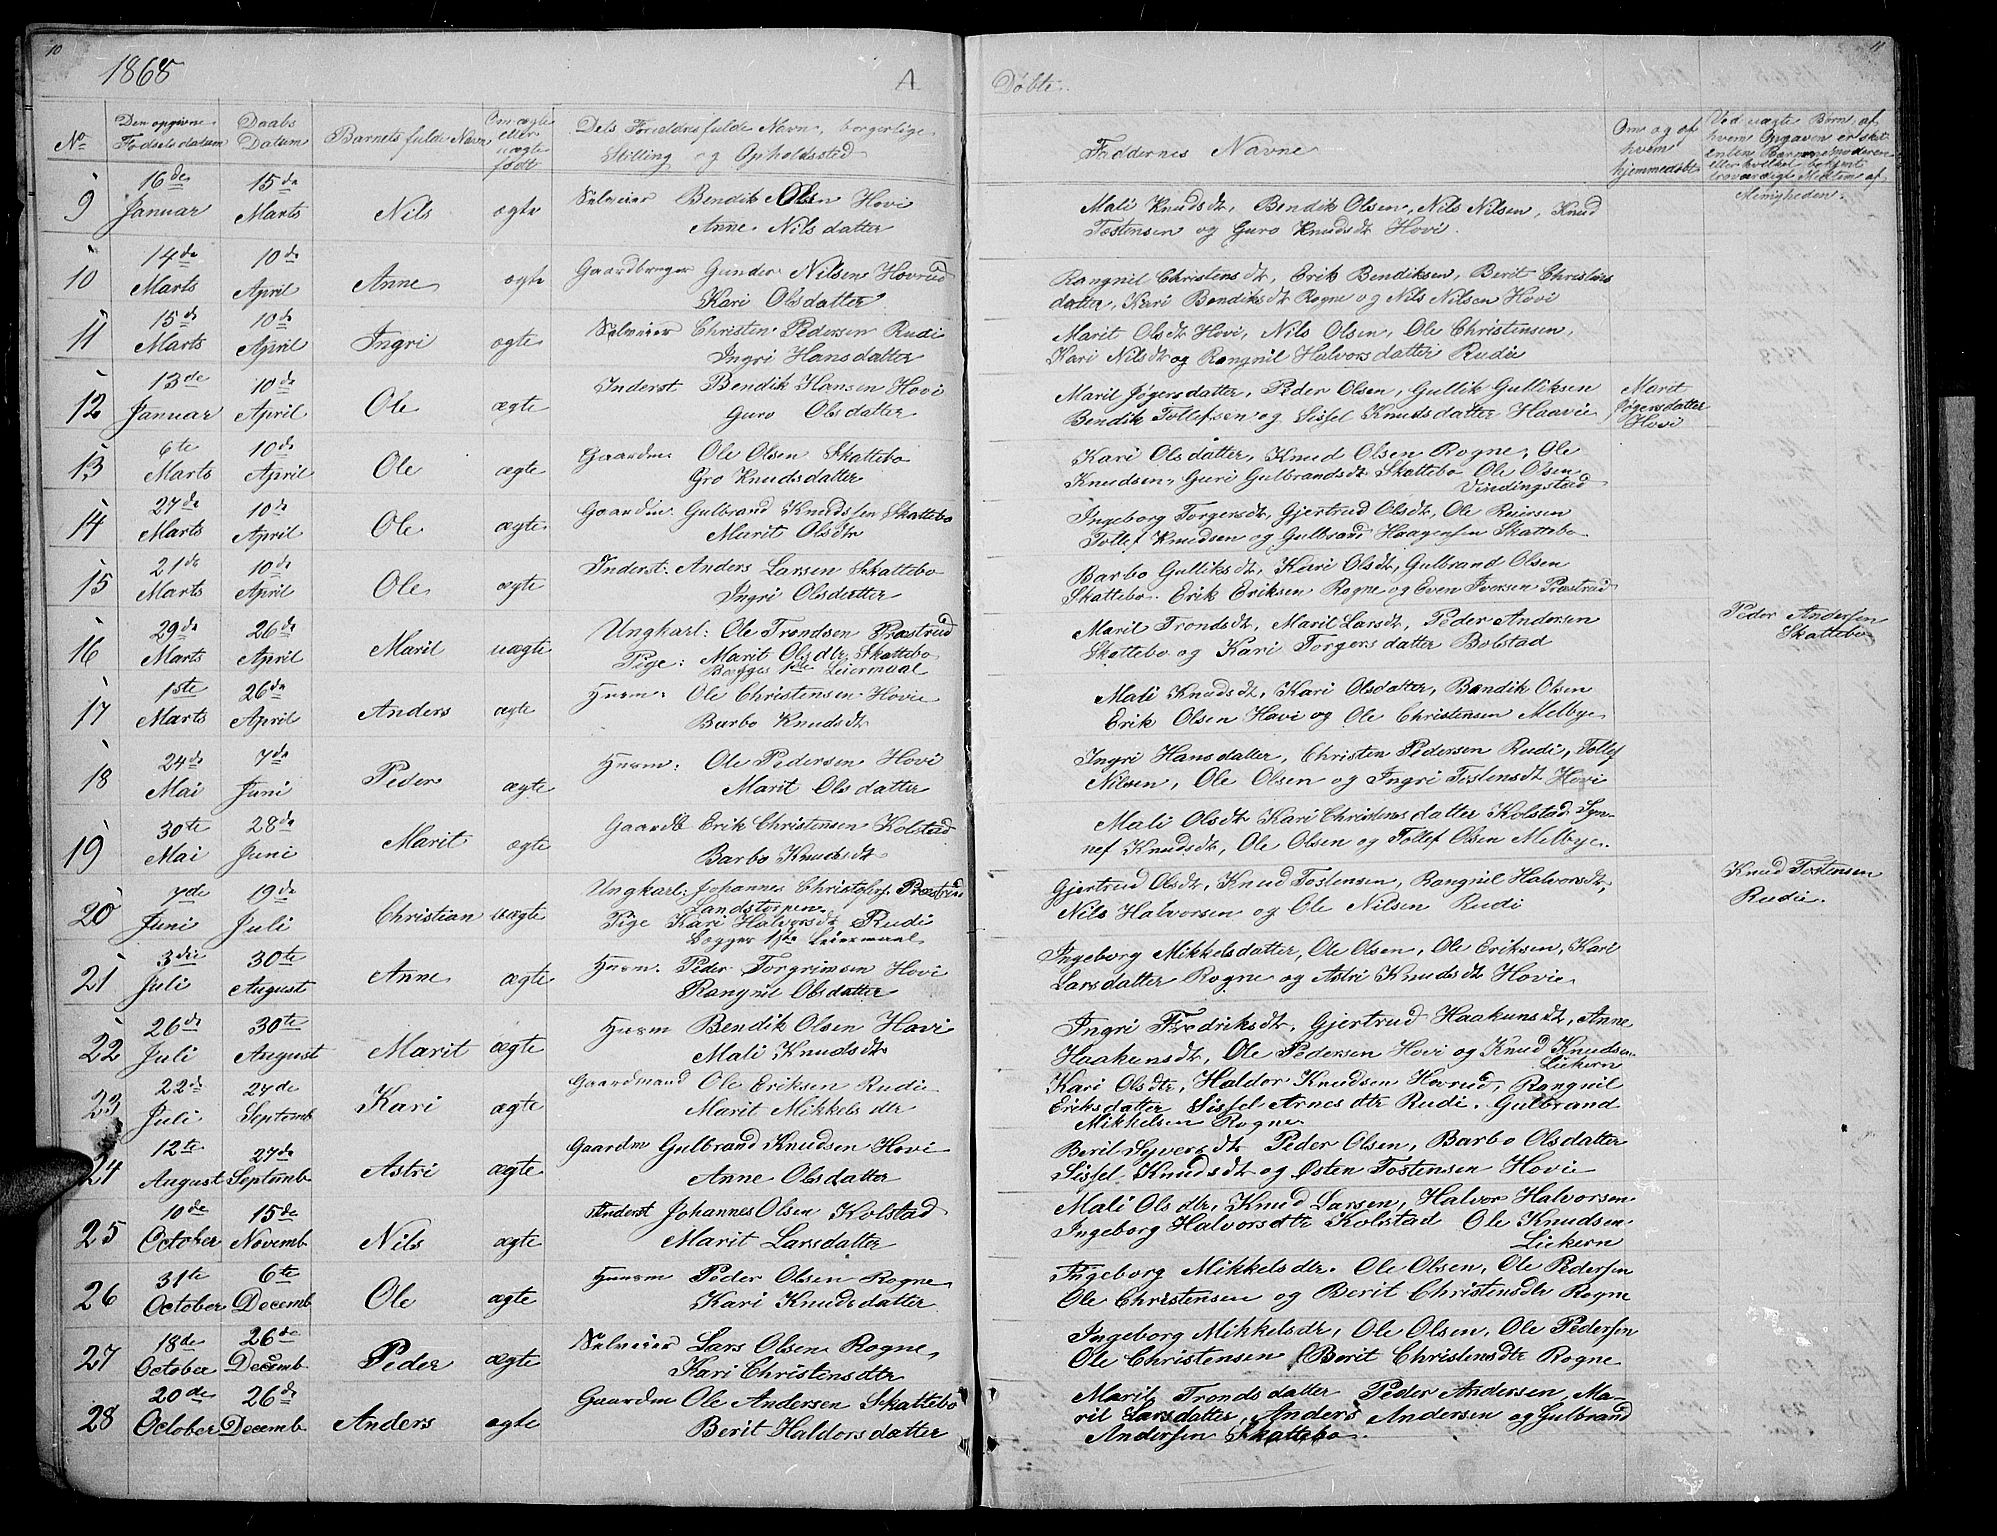 10
1868
A
Døbte.
11
No
Den opgivne Fødselsdatum
Daabs Datum
Barnets fulde Navn
Om ægte eller uægte født
Dets Forældres fulde Navn, borgerlige Stilling og Opholdssted
Faddernes Navne
Om og af hvem hjemmedøbt
Ved uægte Børn, af hvem Opgaven er skeet
enten Barnemoderen
eller hvilket bekjendt
troværdigt Medlem af
Menigheden.
9 16de Januar 15de Marts Nils ægte Selveier Bendik Olsen Hovi
Anne Nilsdatter
Mali Knudsdtr, Bendik Olsen, Nils Nilsen, Knud
Tostensen og Guro Knudsdtr Hovi.
10 14de Marts 10de April Anne ægte Gaardbruger Gunder Nilsen Hovrud
Kari Olsdatter
Rangnil Christensdtr, Erik Bendiksen, Berit Christens
datter, Kari Bendiksdtr Rogne og Nils Nilsen Hovi
11 15de Marts 10de April Ingri ægte Selveier Christen Pedersen Rudi
Ingri Hansdatter
Marit Olsdtr Hovi, Nils Olsen, Ole Christensen,
Kari Nilsdtr og Rangnil Halvorsdatter Rudi
12 13de Januar 10de April Ole ægte Inderst Bendik Hansen Hovi
Guro Olsdatter
Maril Jøgersdatter, Peder Olsen, Gullik Gulliksen
Bendik Tollefsen og Sissel Knudsdatter Haavie
Marit
Jøgersdatter
Hovi
13 6te Marts 10de April Ole ægte Gaardm. Ole Olsen Skattebo
Gro Knudsdatter
Kari Olsdatter, Knud Olsen Rogne, Ole
Knudsen, Guri Gulbrandsdtr Skattebo Ole Olsen
Vindingstad
14 27de Marts 10de April Ole ægte Gaardm. Gulbrand Knudsen Skattebo
Marit Olsdtr
Ingeborg Torgersdtr, Gjertrud Olsdtr, Ole Reiersen
Tollef Knudsen og Gulbrand Haagensen Skattebo
15 21de Marts 10de April Ole ægte Inderst. Anders Larsen Skattebo
Ingri Olsdatter
Barbo Gulliksdtr, Kari Olsdtr, Gulbrand Olsen
Skattebo. Erik Eriksen Rogne og Even Iversen Præstrud
16 29de Marts 26de April Maril uægte Ungkarl: Ole Trondsen Præstrud
Pige: Marit Olsdtr Skattebo
Begges 1ste Leiermaal
Maril Trondsdtr, Maril Larsdtr, Peder Andersen
Skattebo og Kari Torgersdatter Bolstad
Peder Andersen
Skattebo
17 1ste Marts 26de April Anders ægte Husm: Ole Christensen Hovie
Barbo Knudsdtr
Mali Knudsdtr, Kari Olsdatter, Bendik Olsen
Erik Olsen Hovi og Ole Christensen Melbye
18 24de Mai 7de Juni Peder ægte Husm: Ole Pedersen Hovi
Marit Olsdatter
Ingri Hansdatter, Christen Pedersen Rudi, Tollef
Nilsen, Ole Olsen og Ingri Tostensdtr Hovi
19 30te Mai 28de Juni Marit ægte Gaardb Erik Christensen Kolstad
Barbo Knudsdtr
Mali Olsdtr Kari Christensdatter Kolstad Syn-
nef Knudsdtr, Ole Olsen og Tollef Olsen Melbye.
20 7de Juni 19de Juli Christian uægte Ungkarl: Johannes Christofers. Præstrud
Landstorpen
Pige Kari Halvorsdtr Rudi
Begges 1ste Leiermaal
Gjertrud Olsdtr, Knud Tostensen, Rangnil Halvorsdtr,
Nils Halvorsen og Ole Nilsen Rudi
Knud Tostensen
Rudie.
21 3die Juli 30te August Anne ægte Husm. Peder Torgrimsen Hovi
Rangnil Olsdatter
Ingeborg Mikkelsdatter, Ole Olsen, Ole Eriksen, Kari
Larsdatter Rogne og Astri Knudsdtr Hovie
22 26de Juli 30te August Marit ægte Husm Bendik Olsen Hovi
Mali Knudsdtr
Ingri Fredriksdtr, Gjertrud Haakunsdtr, Anne
Haakunsdtr, Ole Pedersen Hovi og Knud Knudsen
Liekern
23 22de Juli 27de Septemb Kari ægte Gaardmand Ole Eriksen Rudi
Marit Mikkelsdtr
Kari Olsdtr, Haldor Knudsen Hovrud, Rangnil
Eriksdatter Sissel Arnesdtr Rudi. Gulbrand
Mikkelsen Rogne
24 12te August 27de Septemb Astri ægte Gaardm Gulbrand Knudsen Hovi
Anne Olsdatter
Beril Syversdtr Peder Olsen, Barbo Olsdatter
Sissel Knudsdtr og Østen Tostensen Hovie
25 10de October 15de Novemb Nils ægte Inderst Johannes Olsen Kolstad
Marit Larsdatter
Mali Olsdtr, Knud Larsen, Halvor Halvorsen
Ingeborg Halvorsdtr Kolstad Ole Knudsen
Liekern
26 31te October 6te Decemb Ole ægte Husm Peder Olsen Rogne
Kari Knudsdatter
Ingeborg Mikkelsdtr. Ole Olsen, Ole Pedersen
Ole Christensen og Berit Christensdtr Rogne
27 18de October 26de Decemb Peder ægte Selveier Lars Olsen Rogne
Kari Christensdtr
Ingeborg Mikkelsdtr, Ole Olsen, Ole Pedersen
Ole Christensen Berit Christensdtr Rogne
28 20de October 26de Decemb Anders ægte Gaardm Ole Andersen Skattebo
Berit Haldorsdatter
Maril Trondsdatter Peder Andersen, Ma-
ril Larsdatter, Anders Andersen og Gulbrand
Andersen Skattebo.